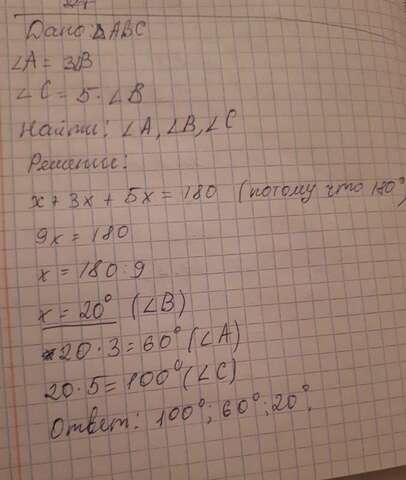 Дано: ΔABC
∠A = 3∠B
∠C = 5·∠B
Найти: ∠A, ∠B, ∠C
Решение:
x + 3x + 5x = 180 (потому что 180°)
9x = 180
x = 180:9
x = 20° (∠B)
20·3 = 60° (∠A)
20·5 = 100° (∠C)
Ответ: 100°; 60°; 20°.